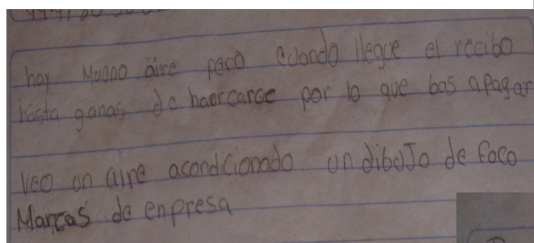 hay Mucho aire pero cuando llegue el recibo
hasta ganas de haorcarce por lo que bas apagar
Veo un aire acondicionado un diboJo de foco
Marcas de enpresa